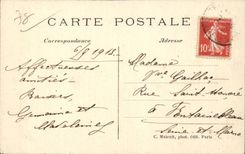 78
CARTE POSTALE
Correspondance
Adresse
6/8 1912.
Affectueuses
amitiés
Baisers
Germaine et
Madame
Vve Caillas
Rue Saint Honoré
Fontainebleau
Seine et Marne
10
C. Malcuit, phot. édit. Paris